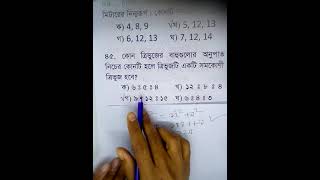 মিটারের
ক) 4, 8, 9 √খ) 5, 12, 13
গ) 6, 12, 13 ঘ) 7, 12, 14
৪৫. কোন ত্রিভুজের বাহুগুলোর অনুপাত
নিচের কোনটি হলে ত্রিভুজটি একটি সমকোণী
ত্রিভুজ হবে?
ক) ৬ : ৫ : ৪ খ) ১২ : ৮ : ৪
√গ) ৯ : ১২ : ১৫ ঘ) ৬ : ৪ : ৩